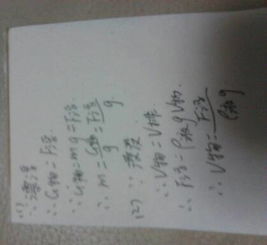 (1) ∵漂浮
∴G物=F浮
∴G物=mg=F浮
∴m=G物/g=F浮/g
(2) ∵浸没
∴V物=V排
∴F浮=ρ液gV物
∴V物=F浮/ρ液g